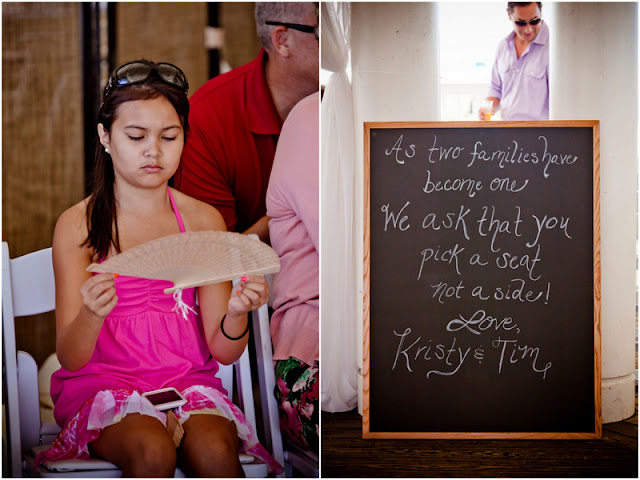 As two families have
become one
We ask that you
pick a seat
not a side!
Love,
Kristy & Tim